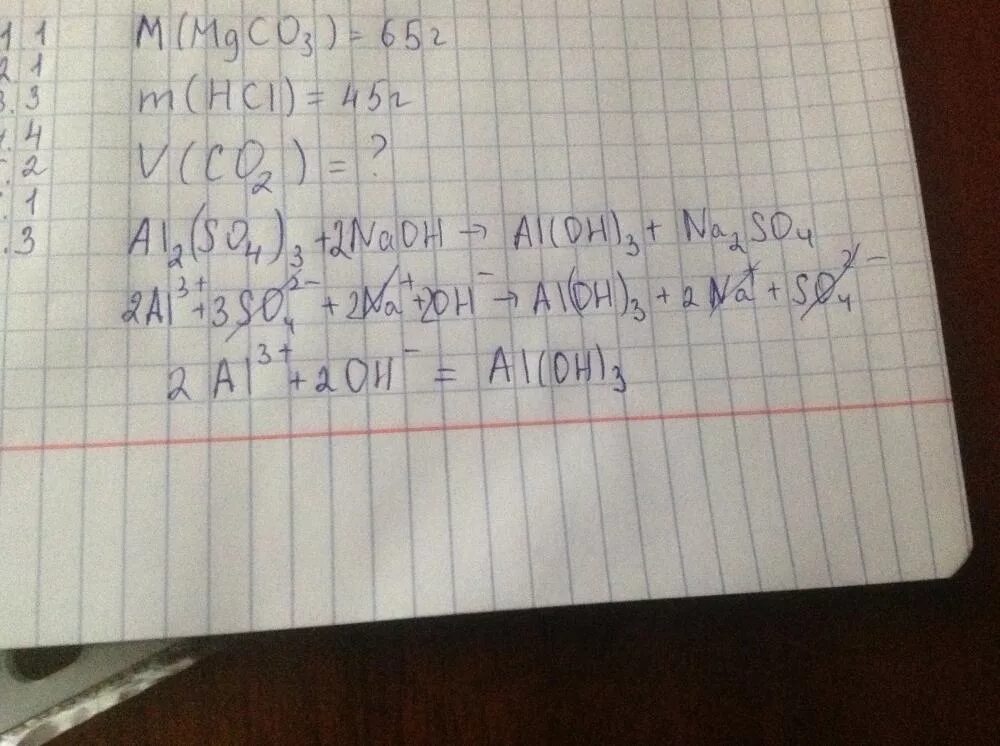 1 1
2 1
3. 3
. 4
. 2
. 1
. 3
M(MgCO₃) = 65г
m(HCl) = 45г
V(CO₂) = ?
Al₂(SO₄)₃ + 2NaOH → Al(OH)₃ + Na₂SO₄
2Al³⁺ + 3SO₄²⁻ + 2Na⁺ + 2OH⁻ → Al(OH)₃ + 2Na⁺ + SO₄²⁻
2Al³⁺ + 2OH⁻ = Al(OH)₃